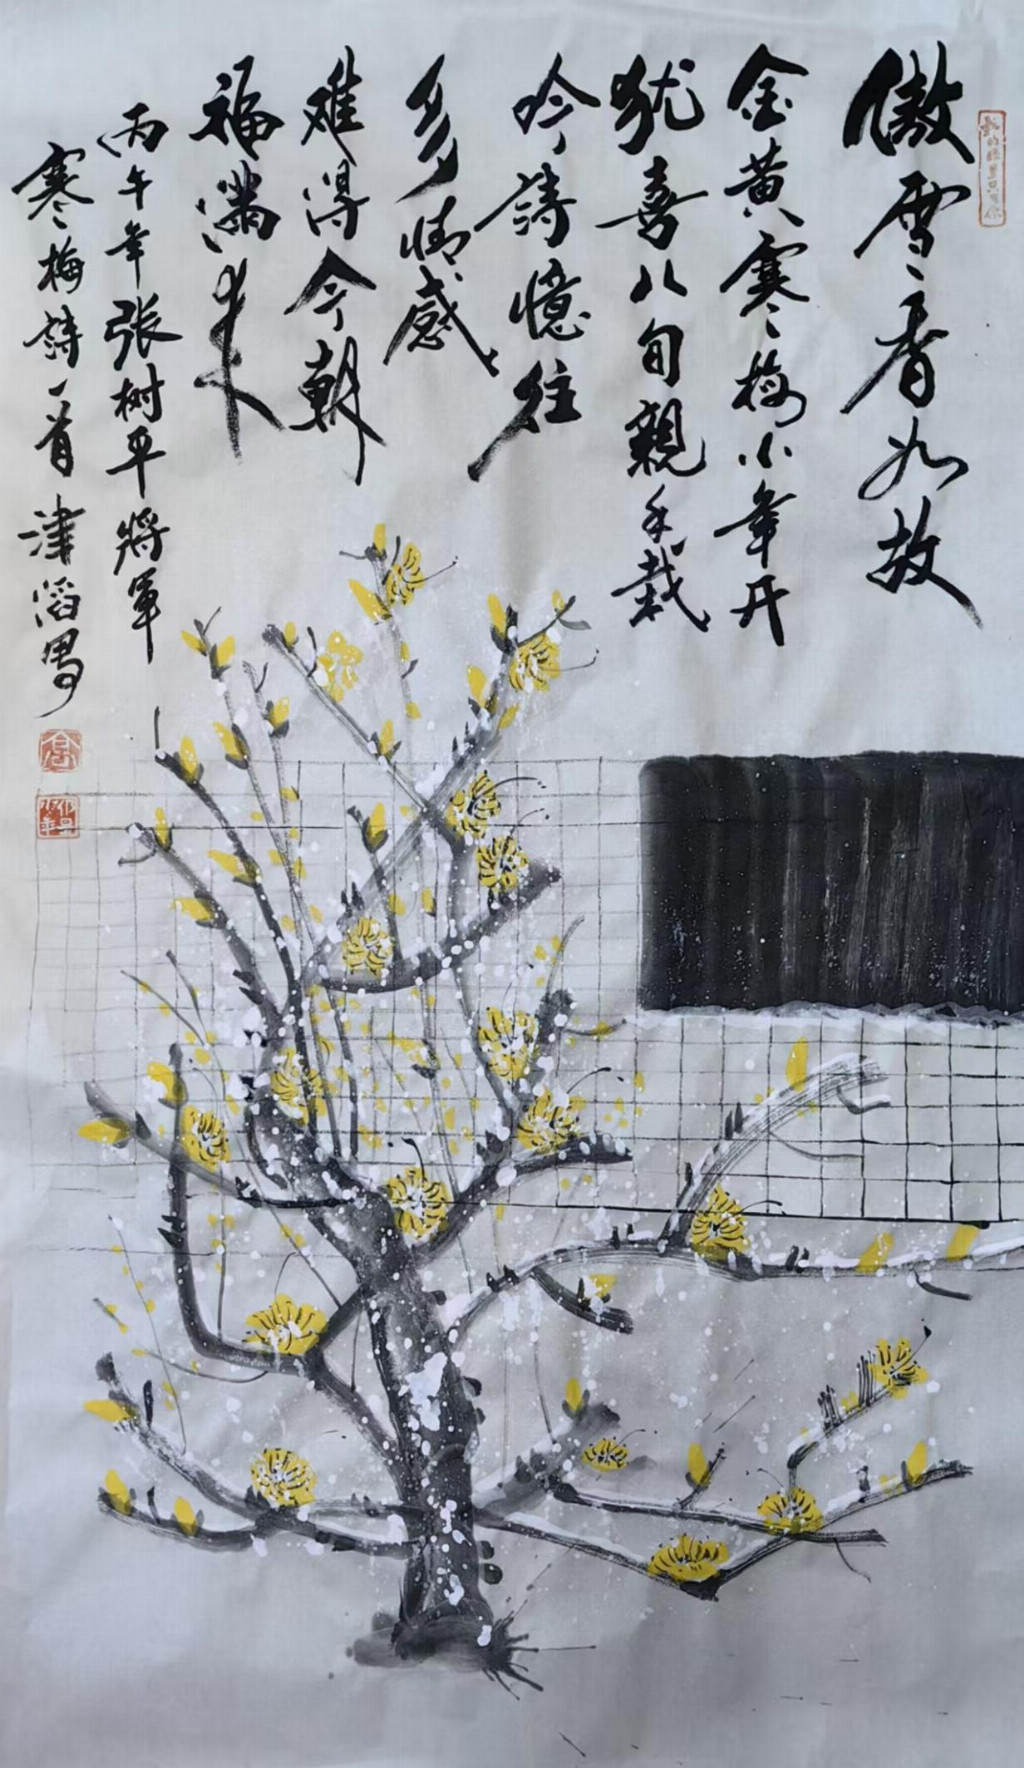 傲雪香如故
金黄寒梅小年开
犹喜八旬親手栽
吟詩憶往
多情感
难得今朝
福满来
丙午年张树平將軍
寒梅詩一首 津滔寫